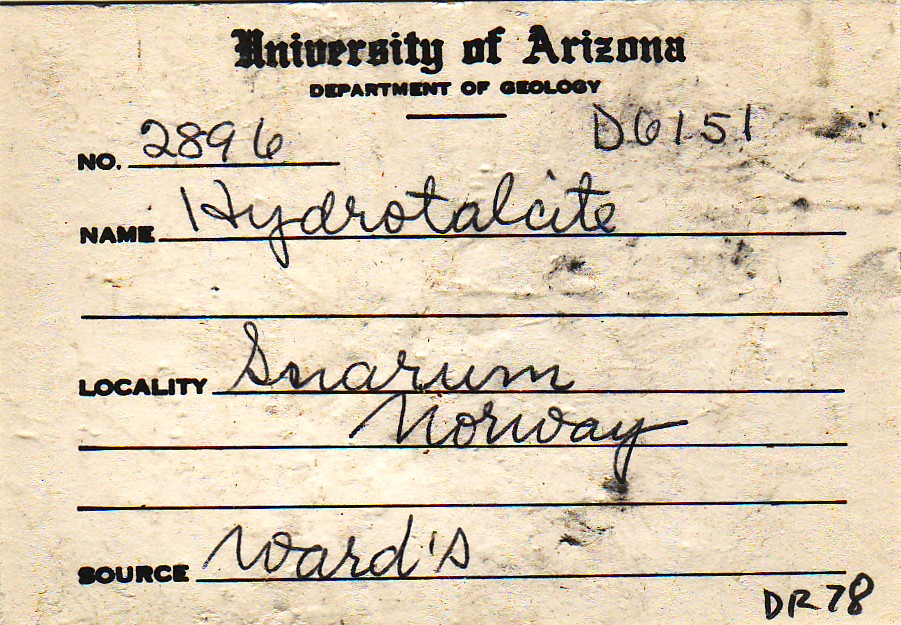 University of Arizona
DEPARTMENT OF GEOLOGY
D6151
NO. 2896
NAME Hydrotalcite
LOCALITY Snarum
Norway
SOURCE Ward's
DR78